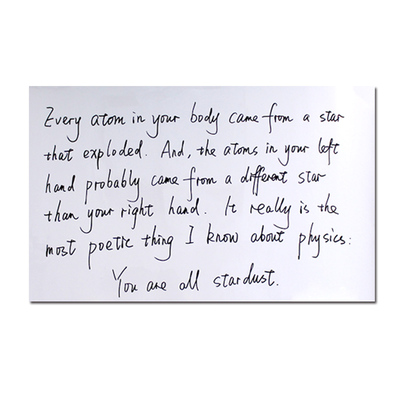 Every atom in your body came from a star
that exploded. And, the atoms in your left
hand probably came from a different star
than your right hand. It really is the
most poetic thing I know about physics:
You are all stardust.